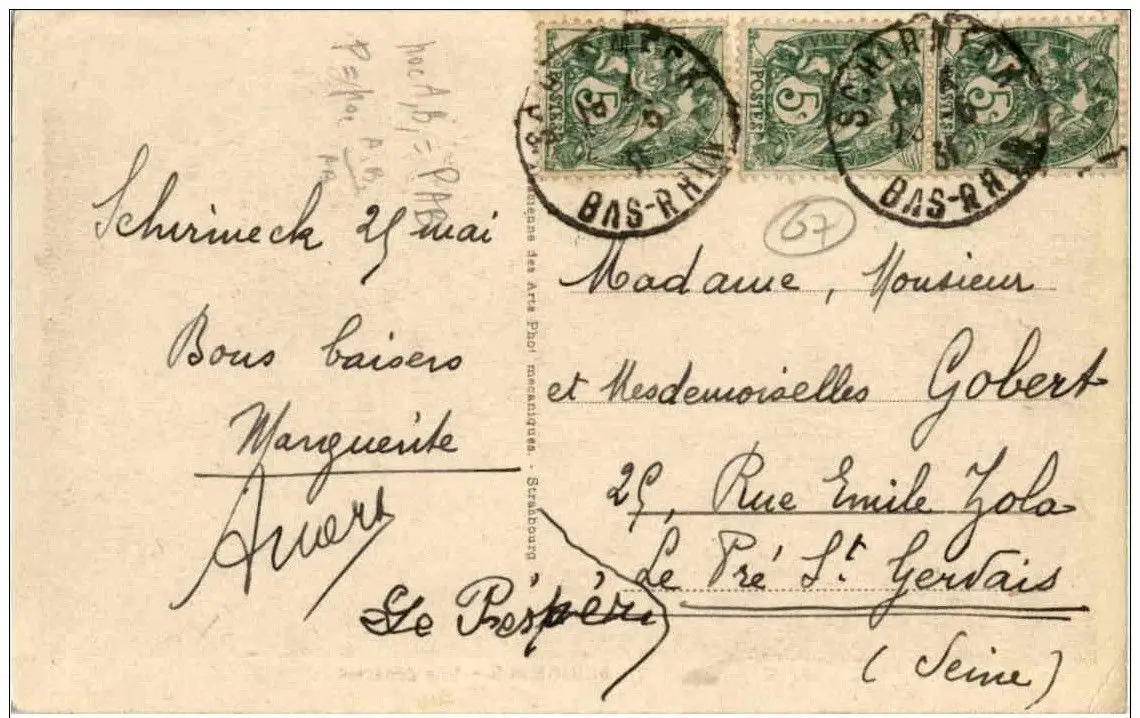 Schirmeck 25 mai
Bons baisers
Marguerite
POSTES 5c
POSTES 5c
POSTES 5c
SCHIRMECK
BAS-RHIN
SCHIRMECK
BAS-RHIN
67
Madame, Monsieur
et Mesdemoiselles Gobert
25, Rue Emile Zola
Le Pré St Gervais
(Seine)
des Arts Phot mecaniques. - Strasbourg